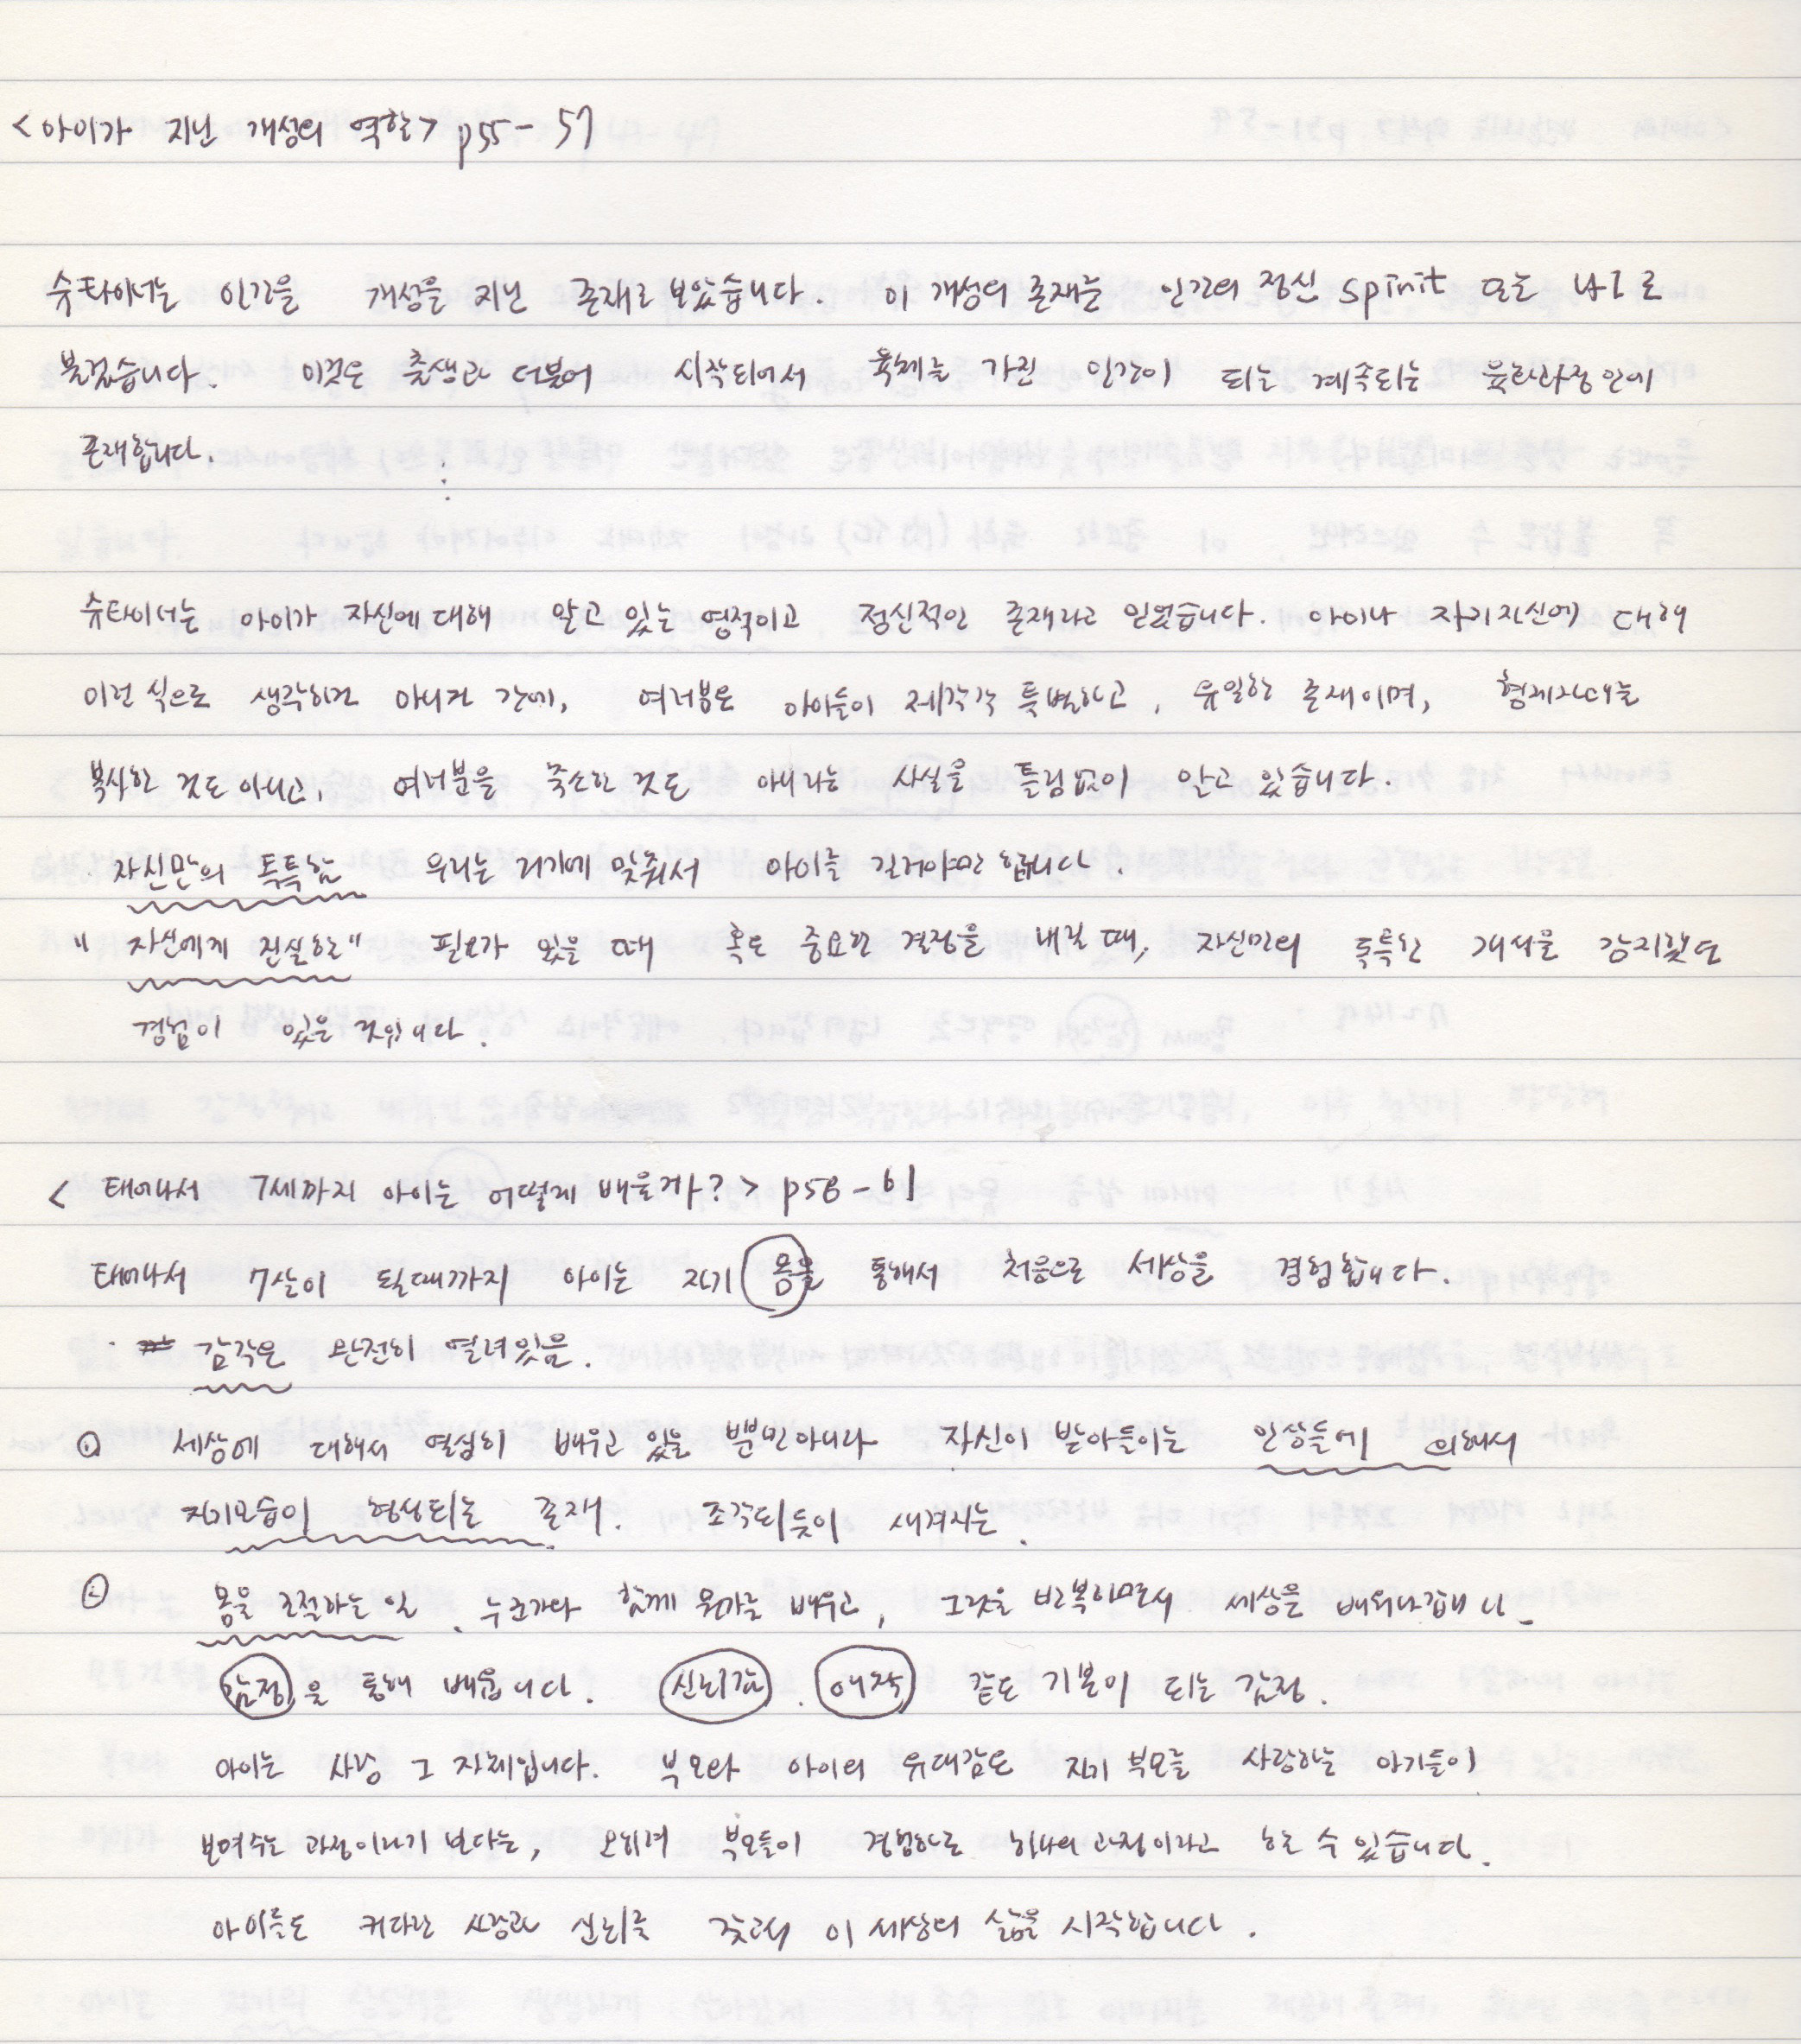 <아이가 지닌 개성의 역할> p55-57
슈타이너는 인간을 개성을 지닌 존재로 보았습니다. 이 개성의 존재를 인간의 정신 spirit 또는 나 I 로
불렀습니다. 이것은 출생과 더불어 시작되어서 육체를 가진 인간이 되는 계속되는 육화과정 안에
존재합니다.
⋮
슈타이너는 아이가 자신에 대해 알고 있는 영적이고 정신적인 존재라고 믿었습니다. 아이나 자기자신에 대해
이런 식으로 생각하건 아니건 간에, 여러분은 아이들이 제각각 특별하고, 유일한 존재이며, 형제자매를
복사한 것도 아니고, 여러분을 축소한 것도 아니라는 사실을 틀림없이 알고 있습니다.
· 자신만의 독특함 우리는 거기에 맞춰서 아이를 길러야만 합니다.
" 자신에게 진실한" 필요가 있을 때 혹은 중요한 결정을 내릴 때, 자신만의 독특한 개성을 감지했던
경험이 있을 것입니다.
< 태어나서 7세까지 아이는 어떻게 배울까? > p58-61
태어나서 7살이 될 때까지 아이는 자기 몸을 통해서 처음으로 세상을 경험합니다.
· 감각은 완전히 열려있음.
세상에 대해서 열심히 배우고 있을 뿐만아니라 자신이 받아들이는 인상들에 의해서
자기모습이 형성되는 존재. 조각되듯이 새겨지는.
몸을 조절하는 일. 누군가와 함께 뭔가를 배우고, 그것을 반복하면서 세상을 배워나갑니다.
감정을 통해 배웁니다. 신뢰감. 애착 같은 기본이 되는 감정.
아이는 사랑 그 자체입니다. 부모와 아이의 유대감은 자기 부모를 사랑하는 아기들이
보여주는 과정이라기 보다는, 오히려 부모들이 경험하는 하나의 과정이라고 할 수 있습니다.
아이들은 커다란 사랑과 신뢰를 갖고서 이 세상의 삶을 시작합니다.